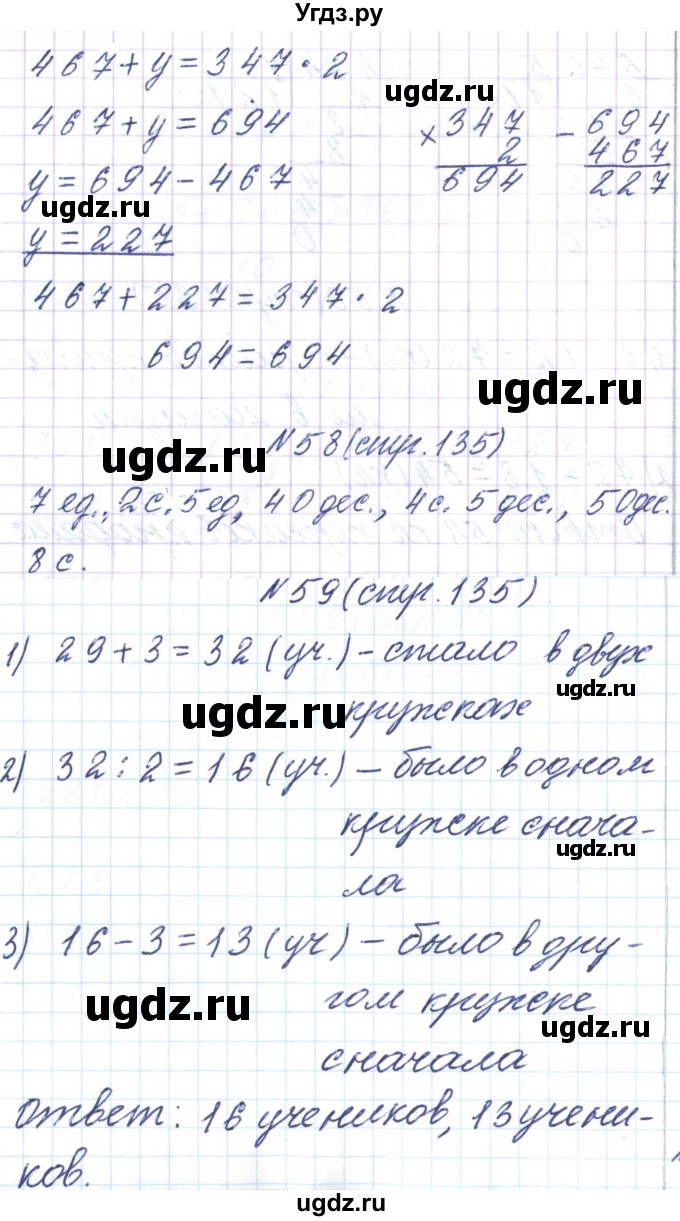 Угдз.ру
467+y=347·2
467+y=694
× 347
2
694
- 694
467
227
y=694-467
ugdz.ru
y=227
467+227=347·2
694=694
ugdz.ru
ugdz.ru
N58(стр.135)
7 ед., 2с. 5 ед, 40 дес., 4с. 5 дес., 50 дес.
8 с.
N59(стр.135)
1) 29+3=32(уч.)-стало в двух
ugdz.ru
ugdz.ru
кружках
2) 32:2=16(уч.)-было в одном
кружке снача-
ugdz.ru
ла
3) 16-3=13(уч)-было в дру-
ugdz.ru
гом кружке
ugdz.ru
сначала
Ответ: 16 учеников, 13 учени-
ков.
ugdz.ru